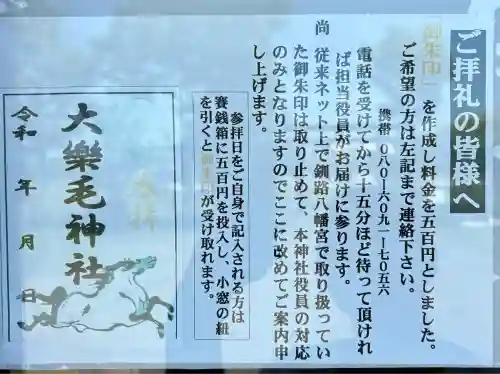 ご拝礼の皆様へ
「御朱印」を作成し料金を五百円としました。
ご希望の方は左記まで連絡下さい。
携帯 〇八〇ー六〇九一ー七〇五六
電話を受けてから十五分ほど待って頂けれ
ば担当役員がお届けに参ります。
尚 従来ネット上で釧路八幡宮で取り扱ってい
た御朱印は取り止めて、本神社役員の対応
のみとなりますのでここに改めてご案内申
し上げます。
参拝日をご自身で記入される方は
賽銭箱に五百円を投入し、小窓の紐
を引くと御朱印が受け取れます。
奉拝
大樂毛神社
令和 年 月 日